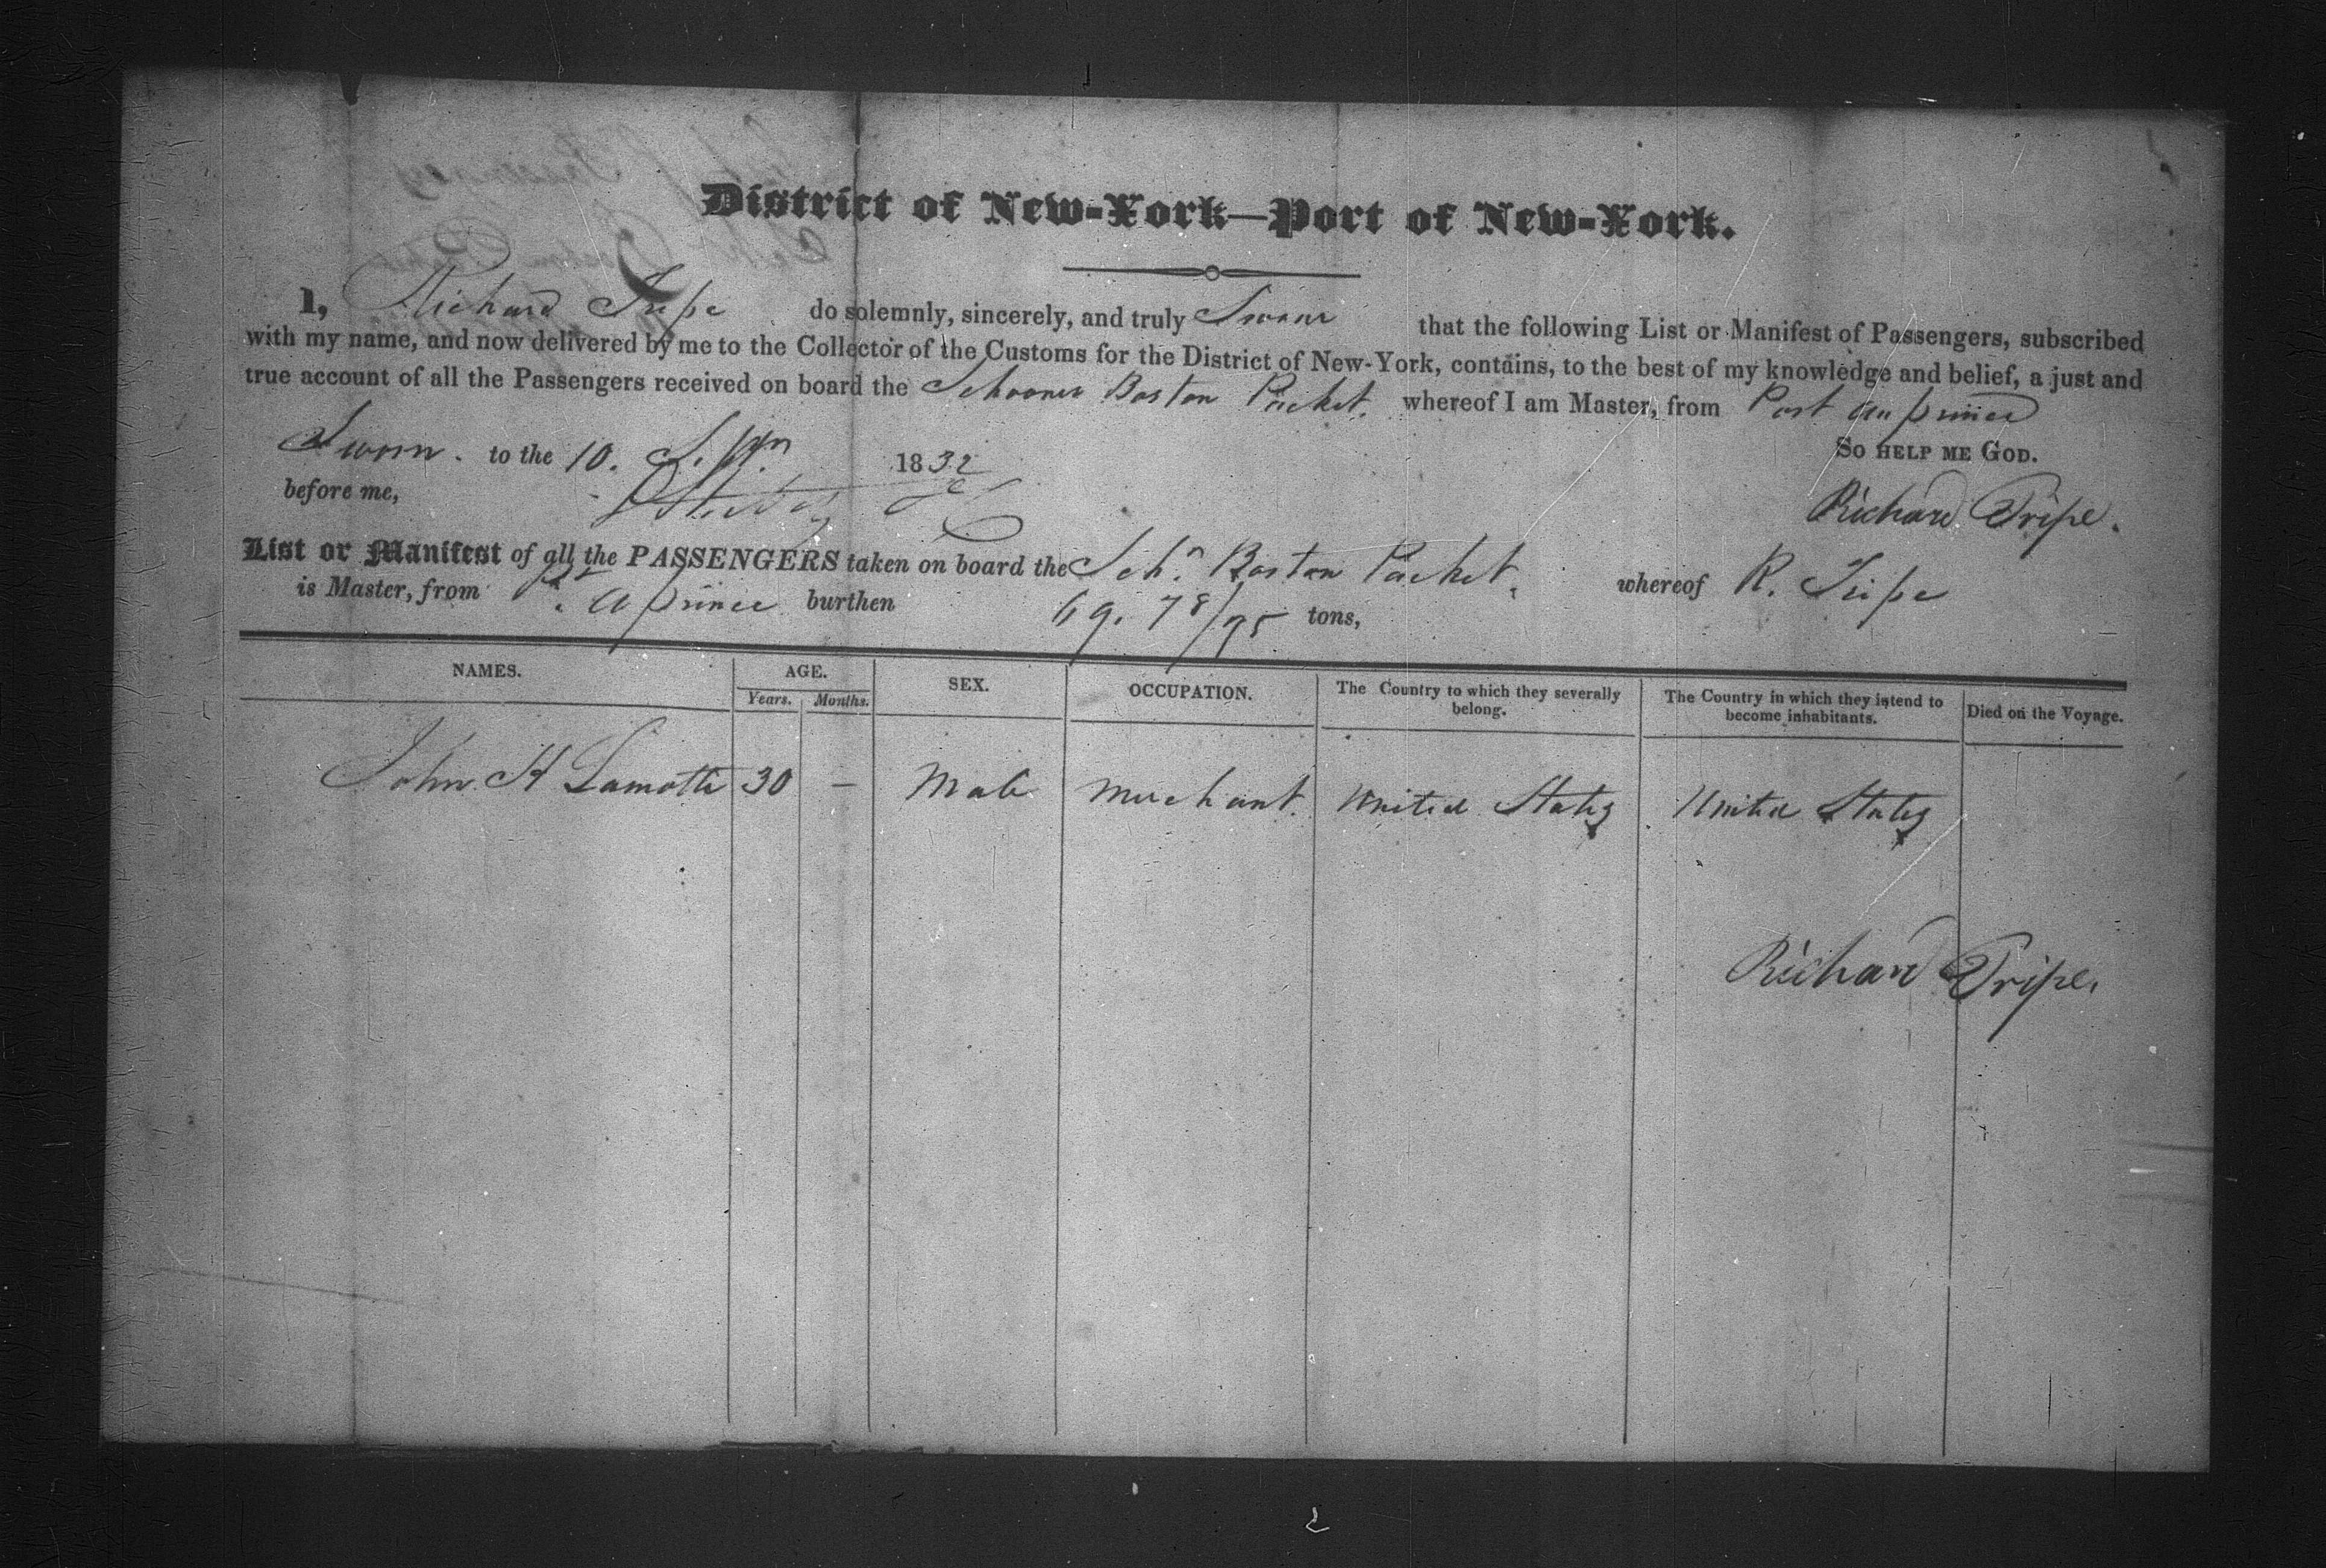 District of New-York—Port of New-York.
I, Richard Tripe do solemnly, sincerely, and truly Swear that the following List or Manifest of Passengers, subscribed
with my name, and now delivered by me to the Collector of the Customs for the District of New-York, contains, to the best of my knowledge and belief, a just and
true account of all the Passengers received on board the Schooner Boston Packet. whereof I am Master, from Port au prince
Sworn. to the 10. 1832 So help me God.
before me, Richard Tripe.
List or Manifest of all the PASSENGERS taken on board the Schr. Boston Packet, whereof R. Tripe
is Master, from Pt. a prince burthen 69. 78/95 tons,
NAMES. AGE. SEX. OCCUPATION. The Country to which they severally belong. The Country in which they intend to become inhabitants. Died on the Voyage.
Years. Months.
John H Lamotte 30 — Male Merchant. United States United States
Richard Tripe.
2